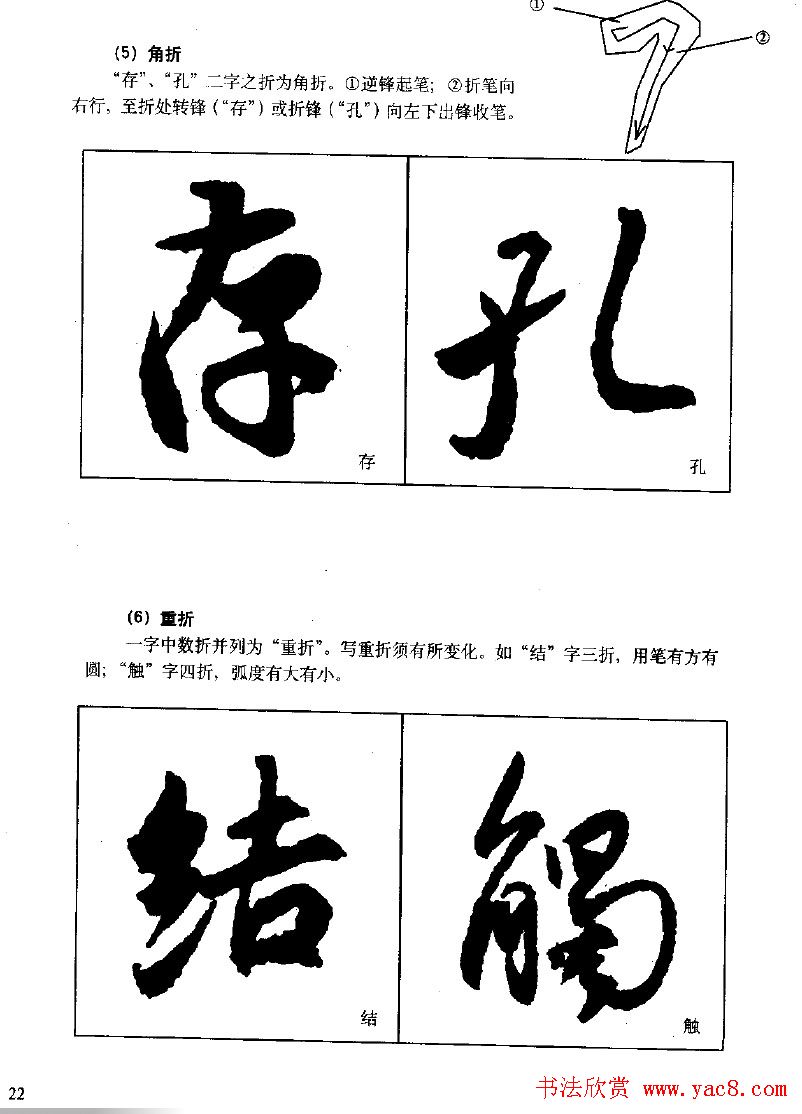 ①
②
(5) 角折
“存”、“孔”二字之折为角折。①逆锋起笔；②折笔向
右行，至折处转锋（“存”）或折锋（“孔”）向左下出锋收笔。
存 孔
存 孔
(6) 重折
一字中数折并列为“重折”。写重折须有所变化。如“结”字三折，用笔有方有
圆；“触”字四折，弧度有大有小。
结 觸
结 触
22
书法欣赏 www.yac8.com